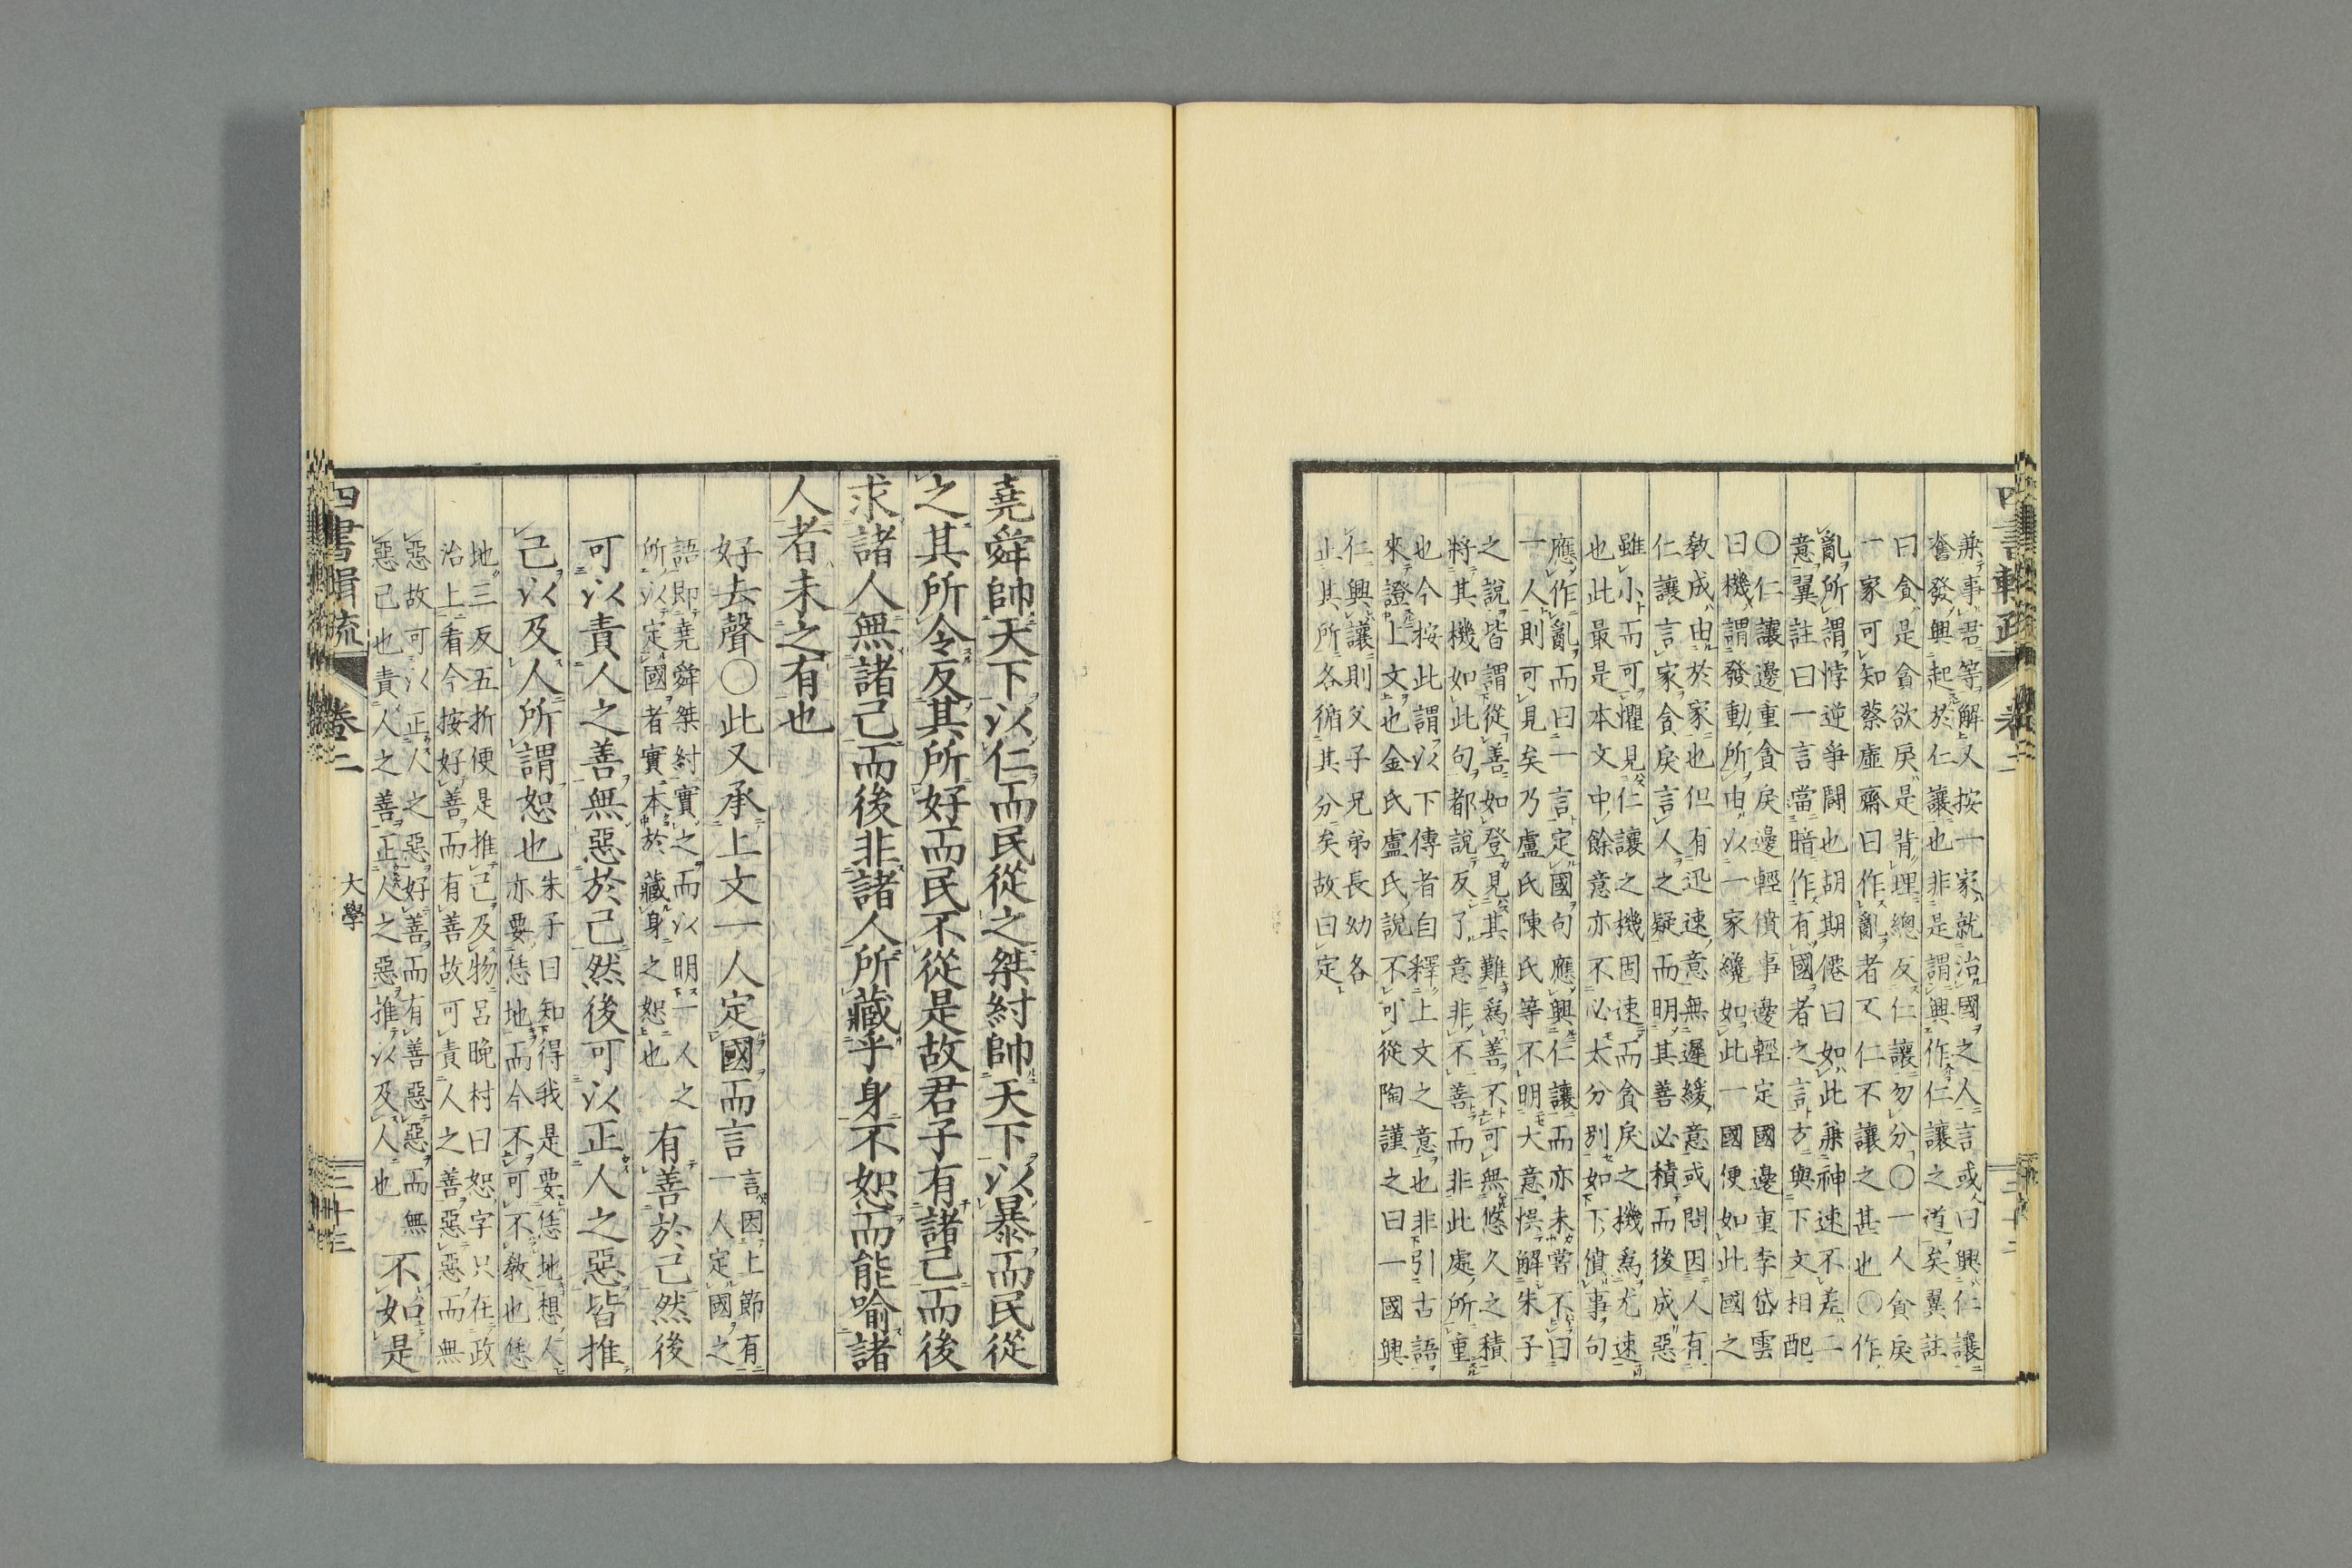 兼事君等解又按一家就治國之人言或曰興仁讓
奮發興起於仁讓也非是謂興作仁讓之道矣翼註
曰貪是貪欲戾是背理總反仁讓勿分〇一人貪戾
一家可知蔡虛齋曰作亂者不仁不讓之甚也〇作
亂所謂悖逆爭鬪也胡期僊曰如此兼神速不差二
意翼註曰一言當暗作有國者之言方與下文相配
〇仁讓邊重貪戾邊輕僨事邊輕定國邊重李岱雲
曰機謂發動所由以一家纔如此一國便如此國之
敎成由於家也但有迅速意無遲緩意或問因人有
仁讓言家貪戾言人之疑而明其善必積而後成惡
雖小而可懼見仁讓之機固速而貪戾之機爲尤速
也此最是本文中餘意亦不必太分別如下僨事句
應作亂而曰一言定國句應興仁讓而亦未嘗不曰
一人則可見矣乃盧氏陳氏等不明大意悞解朱子
之說皆謂從善如登見其難爲善不可無悠久之積
將其機如此句都說反了意非不善而非此處所重
也今按此謂以下傳者自釋上文之意也非引古語
來證上文也金氏盧氏說不可從陶謹之曰一國興
仁興讓則父子兄弟長幼各
止其所各循其分矣故曰定
四書輯疏 卷二
堯舜帥天下以仁而民從之桀紂帥天下以暴而民從
之其所令反其所好而民不從是故君子有諸己而後
求諸人無諸己而後非諸人所藏乎身不恕而能喻諸
人者未之有也
好去聲〇此又承上文一人定國而言言因上節有
一人定國之
語即堯舜桀紂實之而以明一人之
所以定國者實本於藏身之恕也有善於己然後
可以責人之善無惡於己然後可以正人之惡皆推
己以及人所謂恕也朱子曰知得我是要恁地想人
亦要恁地而今不可不敎他恁
地三反五折便是推己及物呂晚村曰恕字只在政
治上看今按好善而有善故可責人之善惡惡而無
惡故可以正人之惡好善而有善惡惡而無
惡己也責人之善正人之惡推以及人也不如是
四書輯疏 卷二 大學 三十三